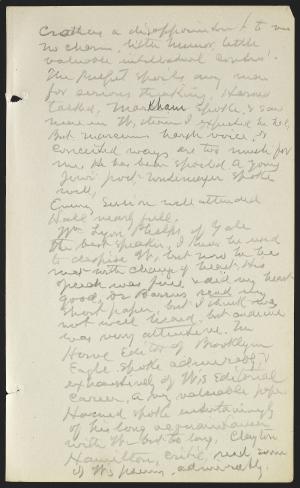 Crothers a disappointment to me
no charm, little humor, little
valuable intellectual
The Buffet spoils any man
for serious thinking. Harned
talked, Markham spoke, I saw
more in W, than I expected he
But harsh voice, &
conceited ways are too much for
me. He has been spoiled. A young
Jewish poet Untermeyer spoke
well,
Evening Session well attended
Hall nearly full.
Wm Lyon Phelps of Yale
the best speaker, I hear he used
to despise W, but now he he
met with change of heart, His
speech was fine & did my heart
good, Dr Barrus read my
short paper, but I think was
not well heard, but audience
was very attentive. The
Howe Editor of Brooklyn
Eagle spoke admirably &
exhaustively of W's Editorial
Career, a very valuable paper
Harned spoke entertainingly
of his long acquaintance
with W- but to long. Clayton
Hamilton, critic, read some
of W's poems, admirably.